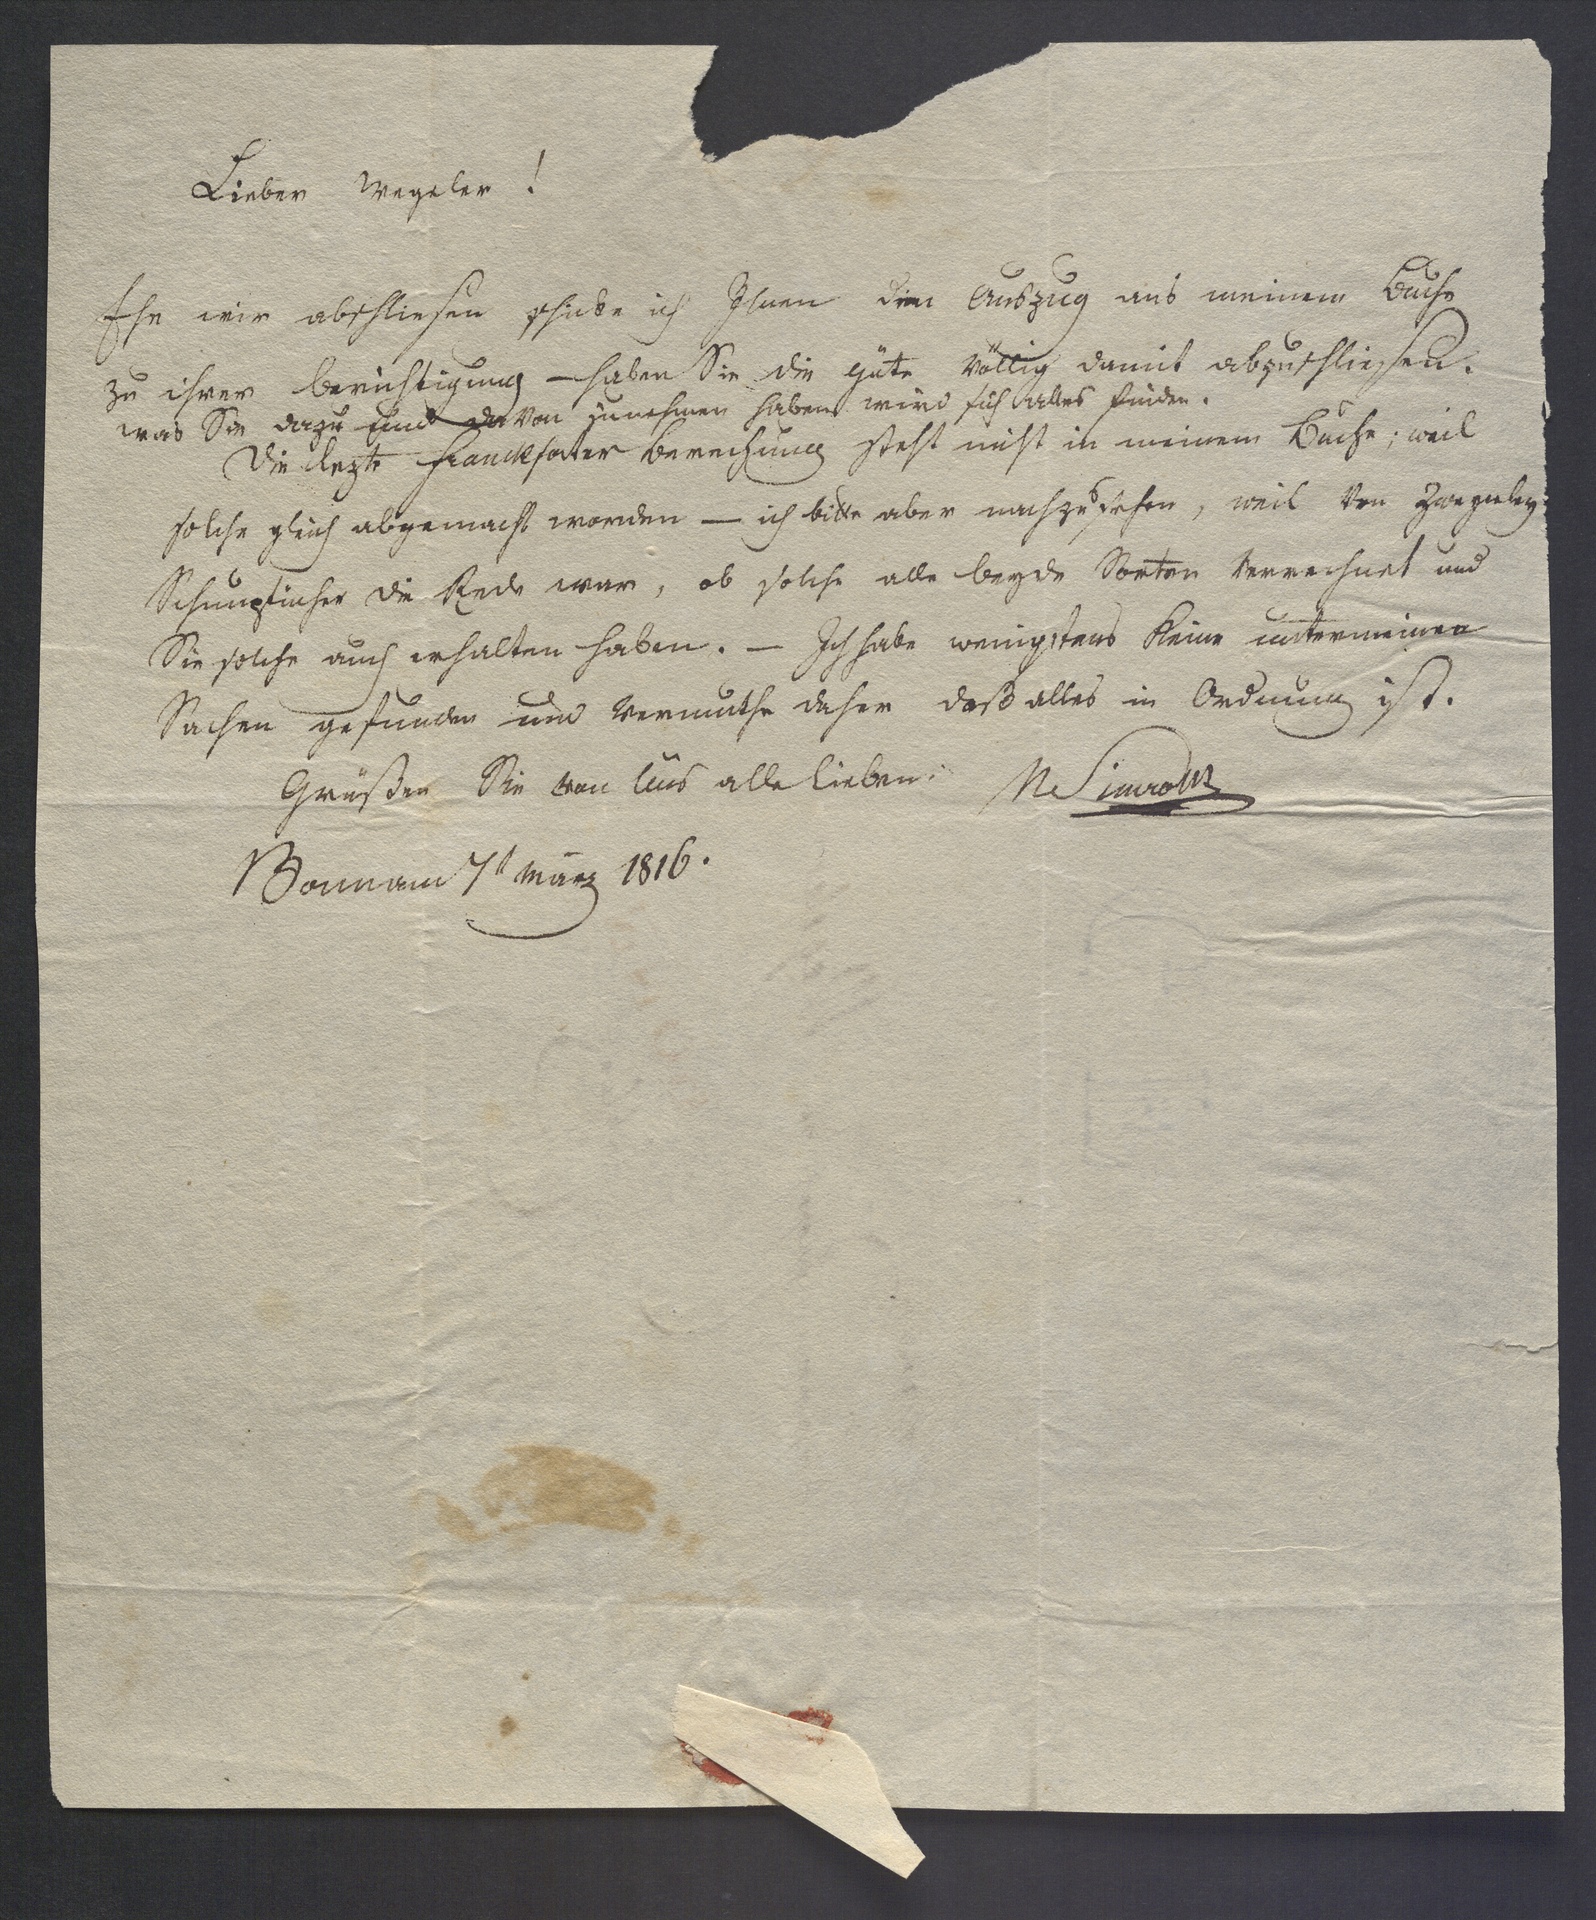 Lieber Wegeler!
Ehe wir abschliesen schicke ich Ihnen den Auszug aus meinem Buche
zu ihrer berichtigung – haben Sie die güte völlig damit abzuschliessen.
was Sie dazu und davon zunehmen haben wird sich alles finden.
Die lezte Franckforter berechnung steht nicht in meinem Buche; weil
solche gleich abgemacht worden – ich bitte aber nachzusehen, weil von
die Rede war, ob solche alle beyde Sorten verrechnet und
Sie solche auch erhalten haben. – Ich habe wenigstens keine unter meinen
Sachen gefunden und vermuthe daher daß alles in Ordnung ist.
Grüßen Sie von uns alle lieben. N. Simrock
Bonn am 7t März 1816.